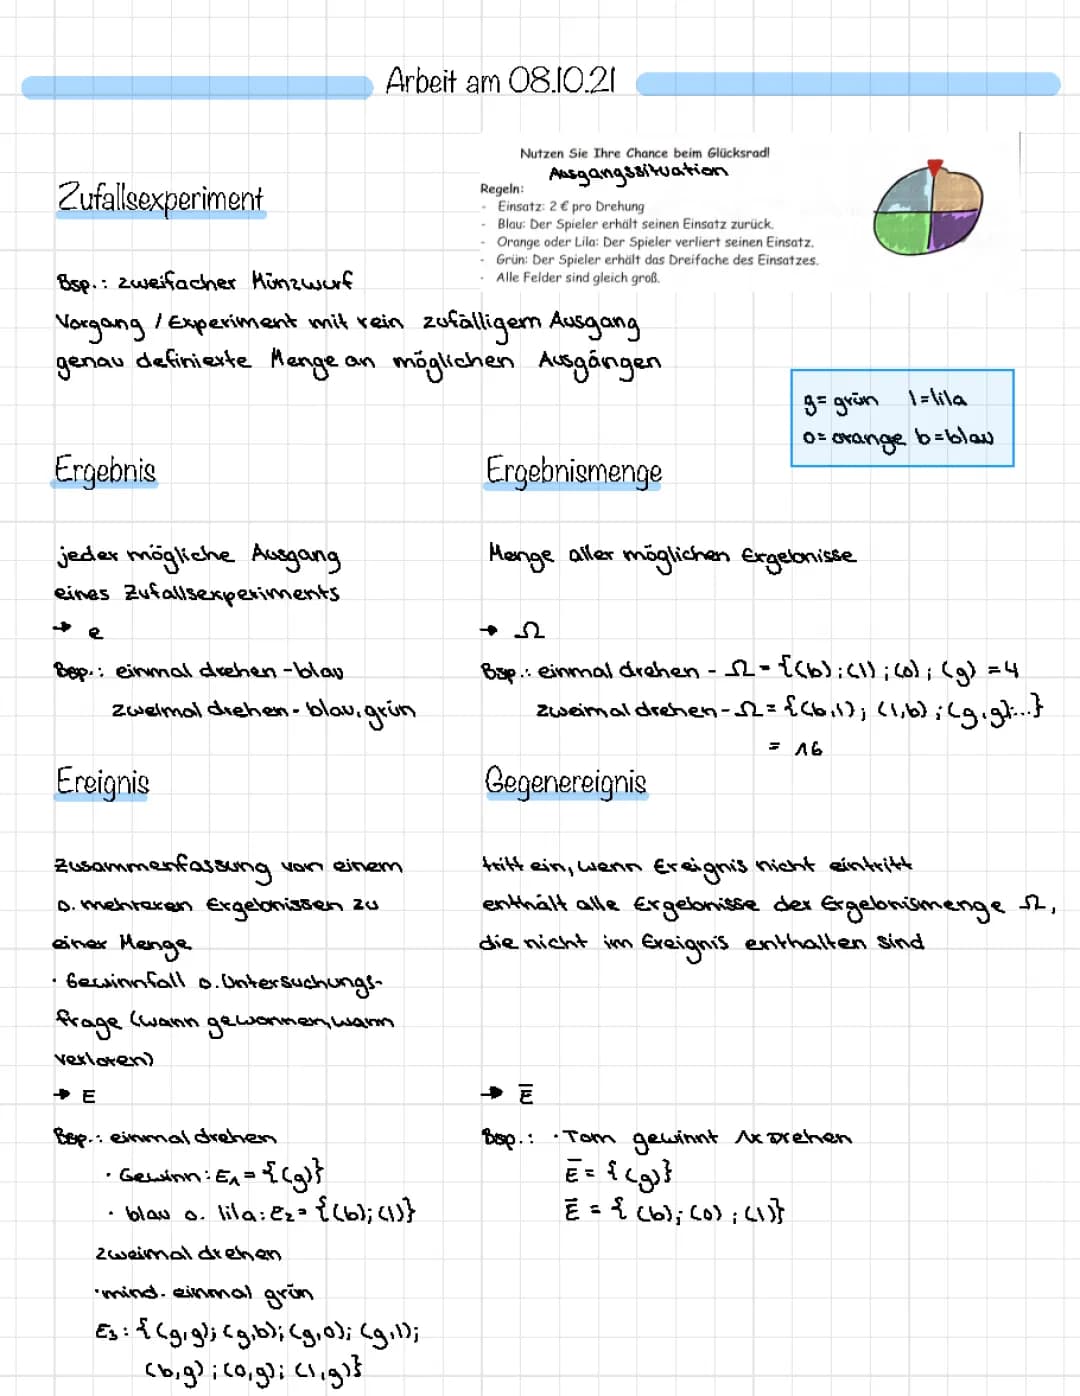 Arbeit am 08.10.21
Nutzen Sie Ihre Chance beim Glücksrad!
Ausgangssituation
Regeln:
- Einsatz: 2 € pro Drehung
- Blau: Der Spieler erhält seinen Einsatz zurück.
- Orange oder Lila: Der Spieler verliert seinen Einsatz.
- Grün: Der Spieler erhält das Dreifache des Einsatzes.
- Alle Felder sind gleich groß.
Zufallsexperiment
Bsp.: zweifacher Münzwurf
Vorgang / Experiment mit rein zufälligem Ausgang
genau definierte Menge an möglichen Ausgängen
g= grün l=lila
o= orange b=blau
Ergebnis
jeder mögliche Ausgang
eines Zufallsexperiments
→ e
Bsp.: einmal drehen -blau
zweimal drehen- blau, grün
Ergebnismenge
Menge aller möglichen Ergebnisse
→ Ω
Bsp.: einmal drehen - Ω = {(b);(l);(o);(g) =4
zweimal drehen-Ω = {(b,l); (l,b);(g,g);...}
= 16
Ereignis
Zusammenfassung von einem
o. mehreren Ergebnissen zu
einer Menge
· Gewinnfall o. Untersuchungs-
frage (wann gewonnen, wann
verloren)
→ E
Bsp.: einmal drehen
· Gewinn: E₁ = {(g)}
· blau o. lila: E₂ = {(b);(l)}
zweimal drehen
·mind. einmal grün
E₃ : {(g,g);(g,b);(g,o);(g,l);
(b,g);(o,g);(l,g)}
Gegenereignis
tritt ein, wenn Ereignis nicht eintritt
enthält alle Ergebnisse der Ergebnismenge Ω,
die nicht im Ereignis enthalten sind
→ E̅
Bsp.: ·Tom gewinnt 1x Drehen
E̅ = {(g)}
E̅ = {(b);(o);(l)}